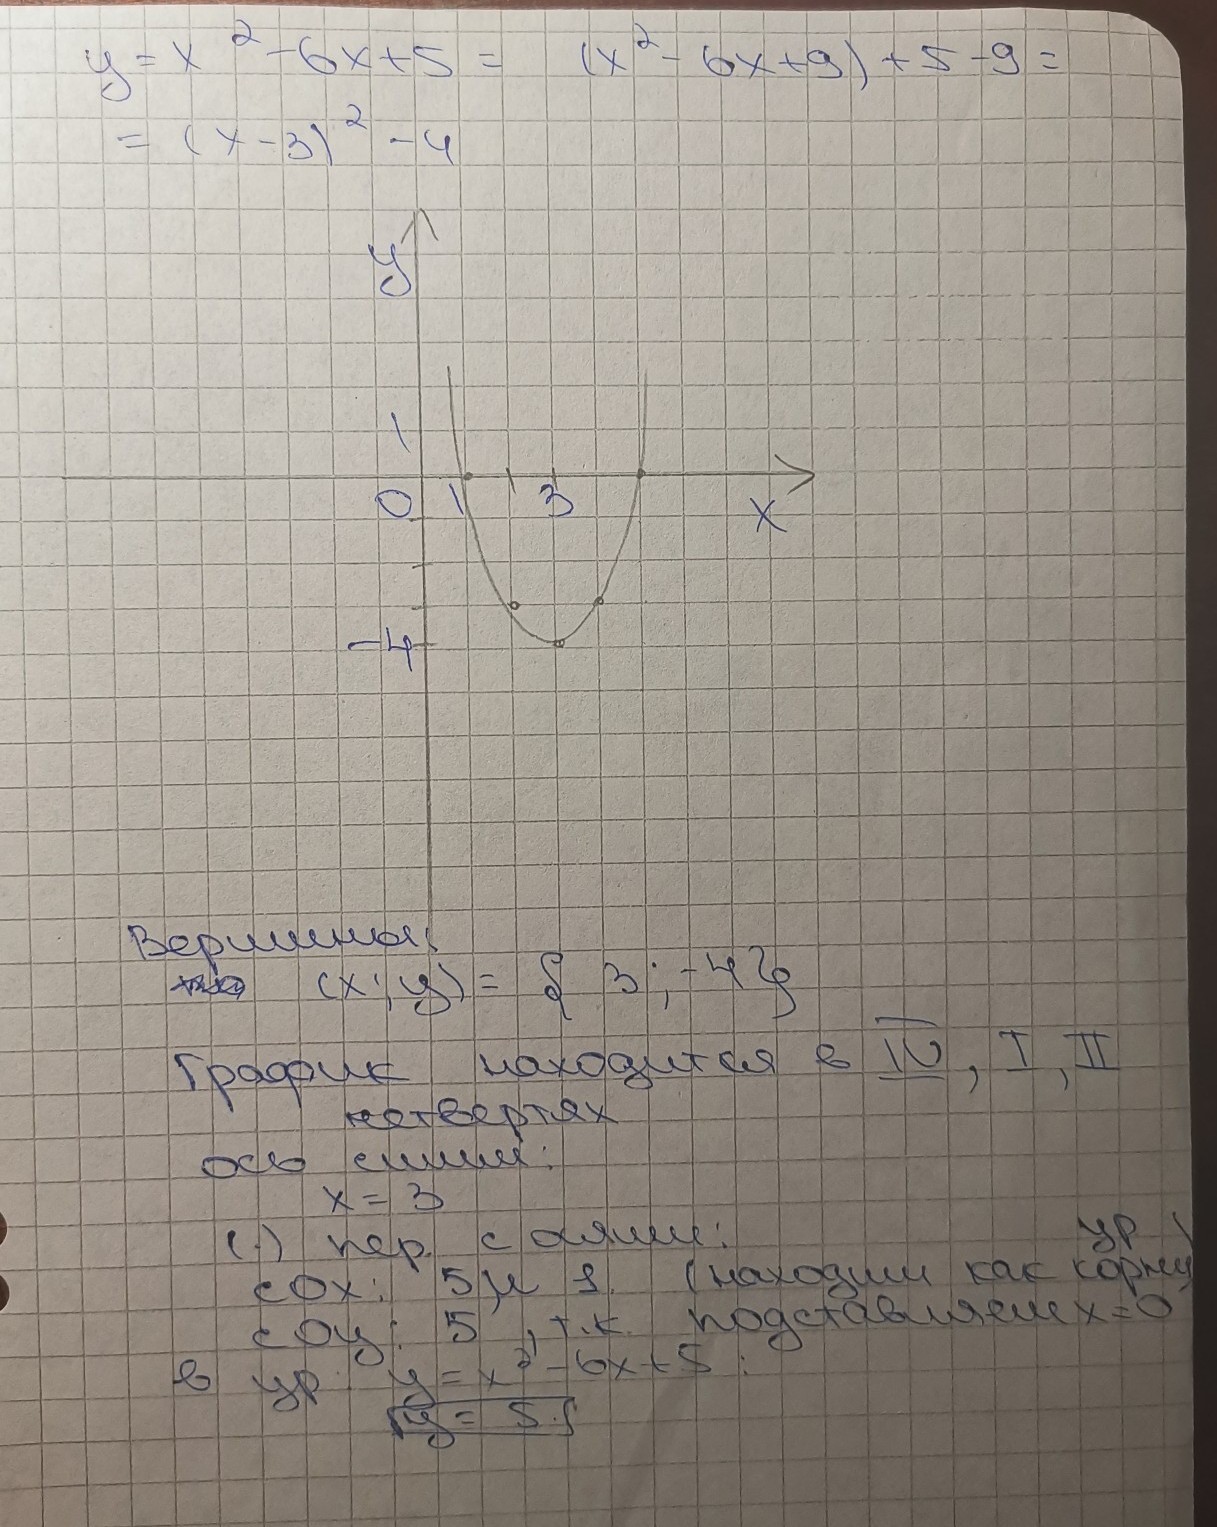 y = x² - 6x + 5 = (x² - 6x + 9) + 5 - 9 =
= (x - 3)² - 4
y
1
0 1 3 x
-4
Вершины:
(x; y) = { 3 ; -4 }
График находится в IV, I, II
четвертях
ось симм:
x = 3
(.) пер. с осями:
ур
с OX: 5 и 1. (находим как корни)
с OY: 5, т.к. подставляем x = 0
в ур. y = x² - 6x + 5 :
y = 5.